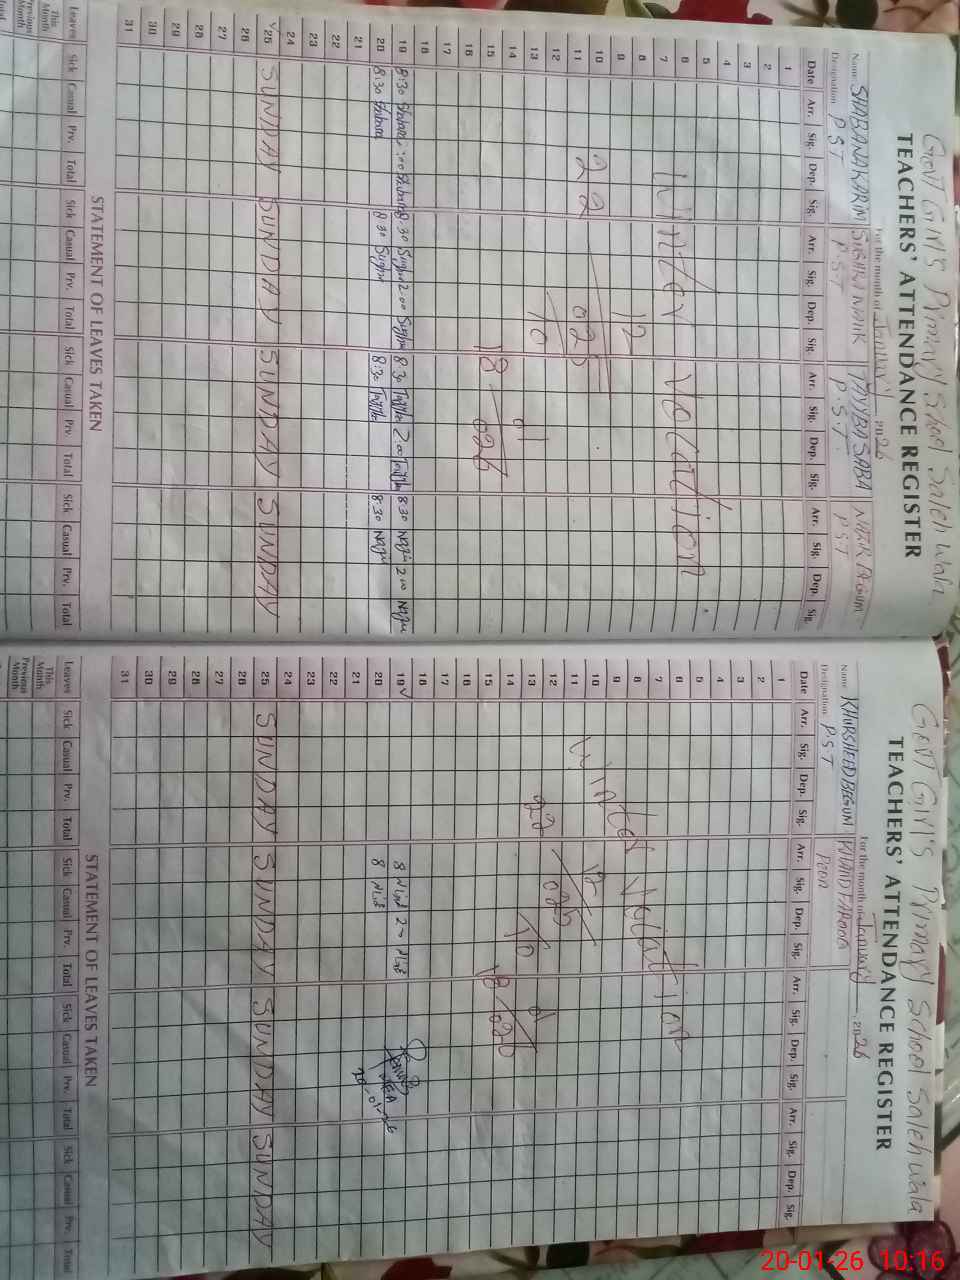 Govt Girl's Primary School Saleh Wala
TEACHERS' ATTENDANCE REGISTER
For the month of January 2026
Name SHABANA KARIM TAYYBA SABA
Designation P.S.T P.S.T P.S.T P.S.T
Date Arr. Sig. Dep. Sig. Arr. Sig. Dep. Sig. Arr. Sig. Dep. Sig. Arr. Sig. Dep. Sig.
1
2
3
4
5
6
7
Winter Vocation
8
9
12
10
22
11
025
12
13
10
14
15
18
026
16
17
18
19 8:30 2:00 8:30 2:00 8:30 2:00 8:30 2:00
20 8:30 8:30 8:30 8:30
21
22
23
24
25 SUNDAY SUNDAY SUNDAY SUNDAY
26
27
28
29
30
31
STATEMENT OF LEAVES TAKEN
Leaves Sick Casual Prv. Total Sick Casual Prv. Total Sick Casual Prv. Total Sick Casual Prv. Total
This Month
Previous Month
Govt Girl's Primary School Saleh wala
TEACHERS' ATTENDANCE REGISTER
For the month of January 2026
Name KHURSHEED BEGUM
Designation P.S.T Peon
Date Arr. Sig. Dep. Sig. Arr. Sig. Dep. Sig. Arr. Sig. Dep. Sig. Arr. Sig. Dep. Sig.
1
2
3
4
5
6
7
8
9
Winter Vocation
10
11
12
12
025
13
22
14
10
15
18
026
16
17
18
19 8 2
20 8
20-01-26
21
22
23
24
25 SUNDAY SUNDAY SUNDAY SUNDAY
26
27
28
29
30
31
STATEMENT OF LEAVES TAKEN
Leaves Sick Casual Prv. Total Sick Casual Prv. Total Sick Casual Prv. Total Sick Casual Prv. Total
This Month
Previous Month
20-01-26 10:16